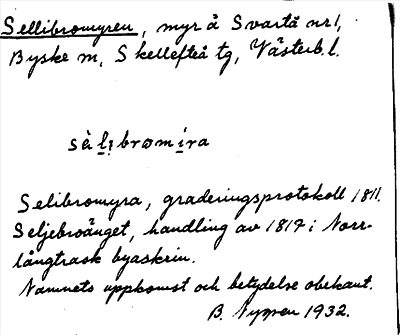 Sellibromyren, myr å Svartå nr 1,
Byske sn, Skellefteå tg, Västerb. l.
sèl̥ibromíra
Selibromyra, graderingsprotokoll 1811.
Seljebroänget, handling av 1817 i Norr-
långträsk byaskrin.
Namnets uppkomst och betydelse obekant.
B. Nygren 1932.